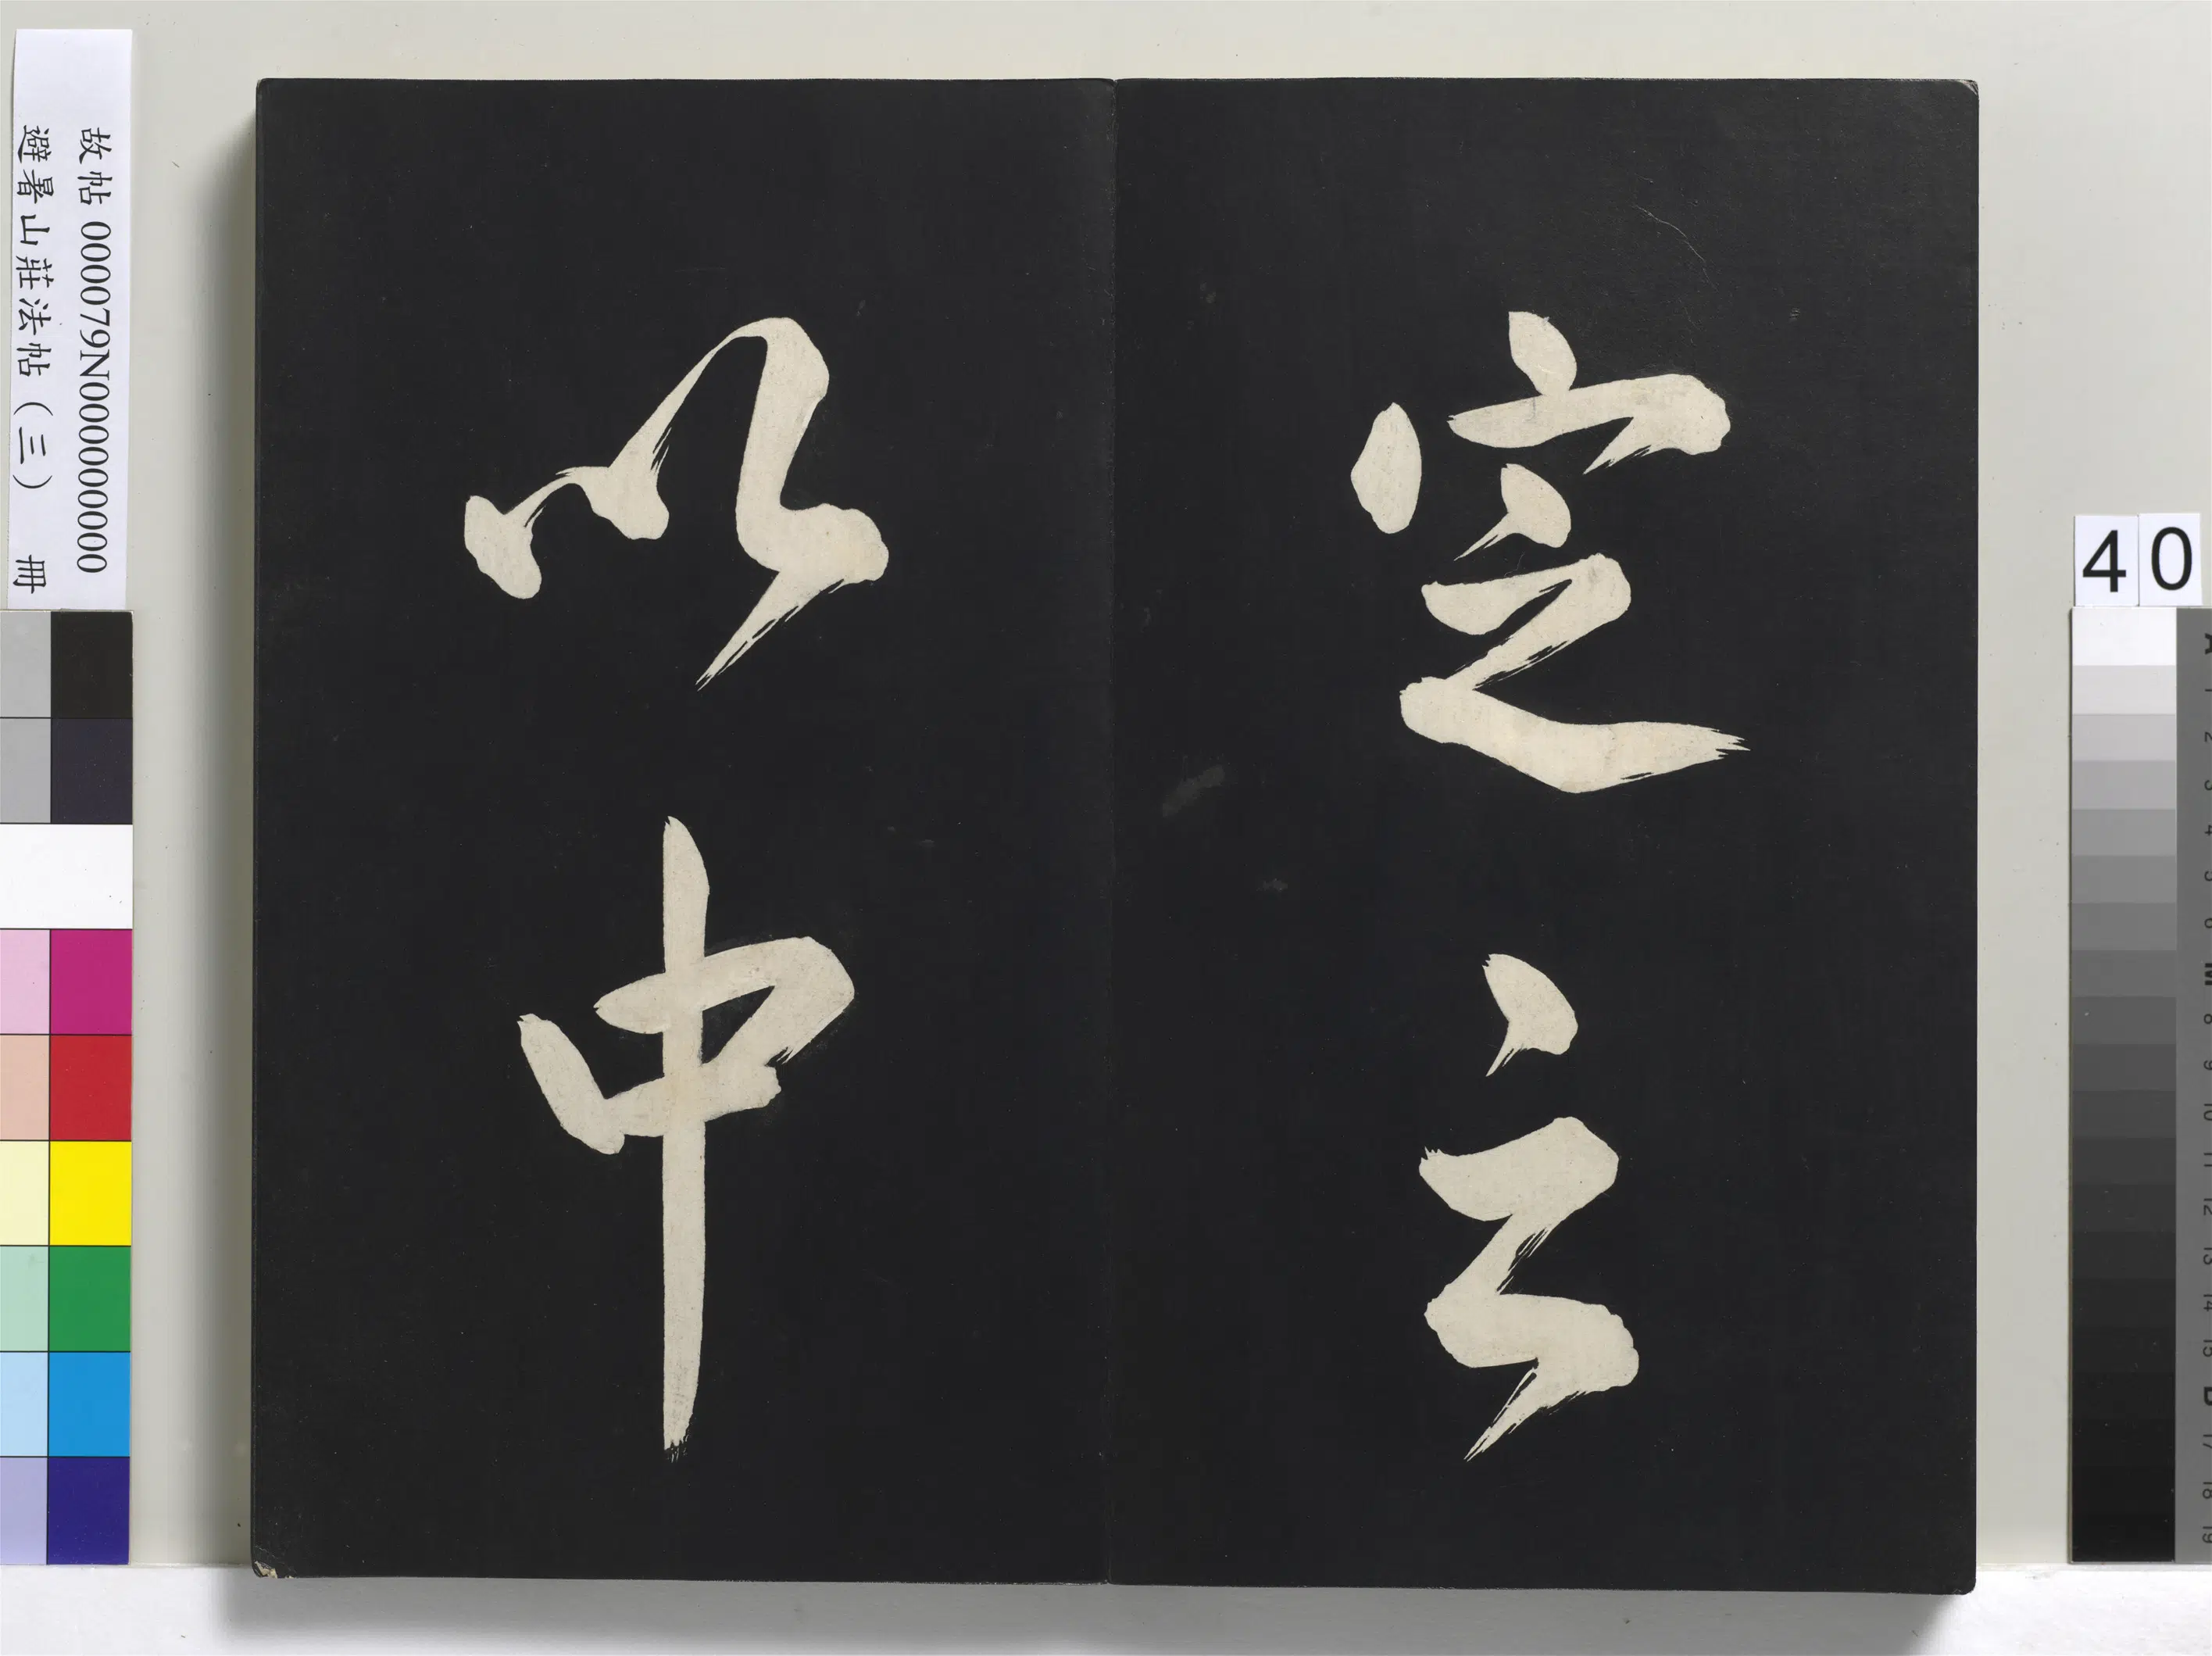 定之
以中
故帖 000079N000000000
避暑山莊法帖（三） 冊
40